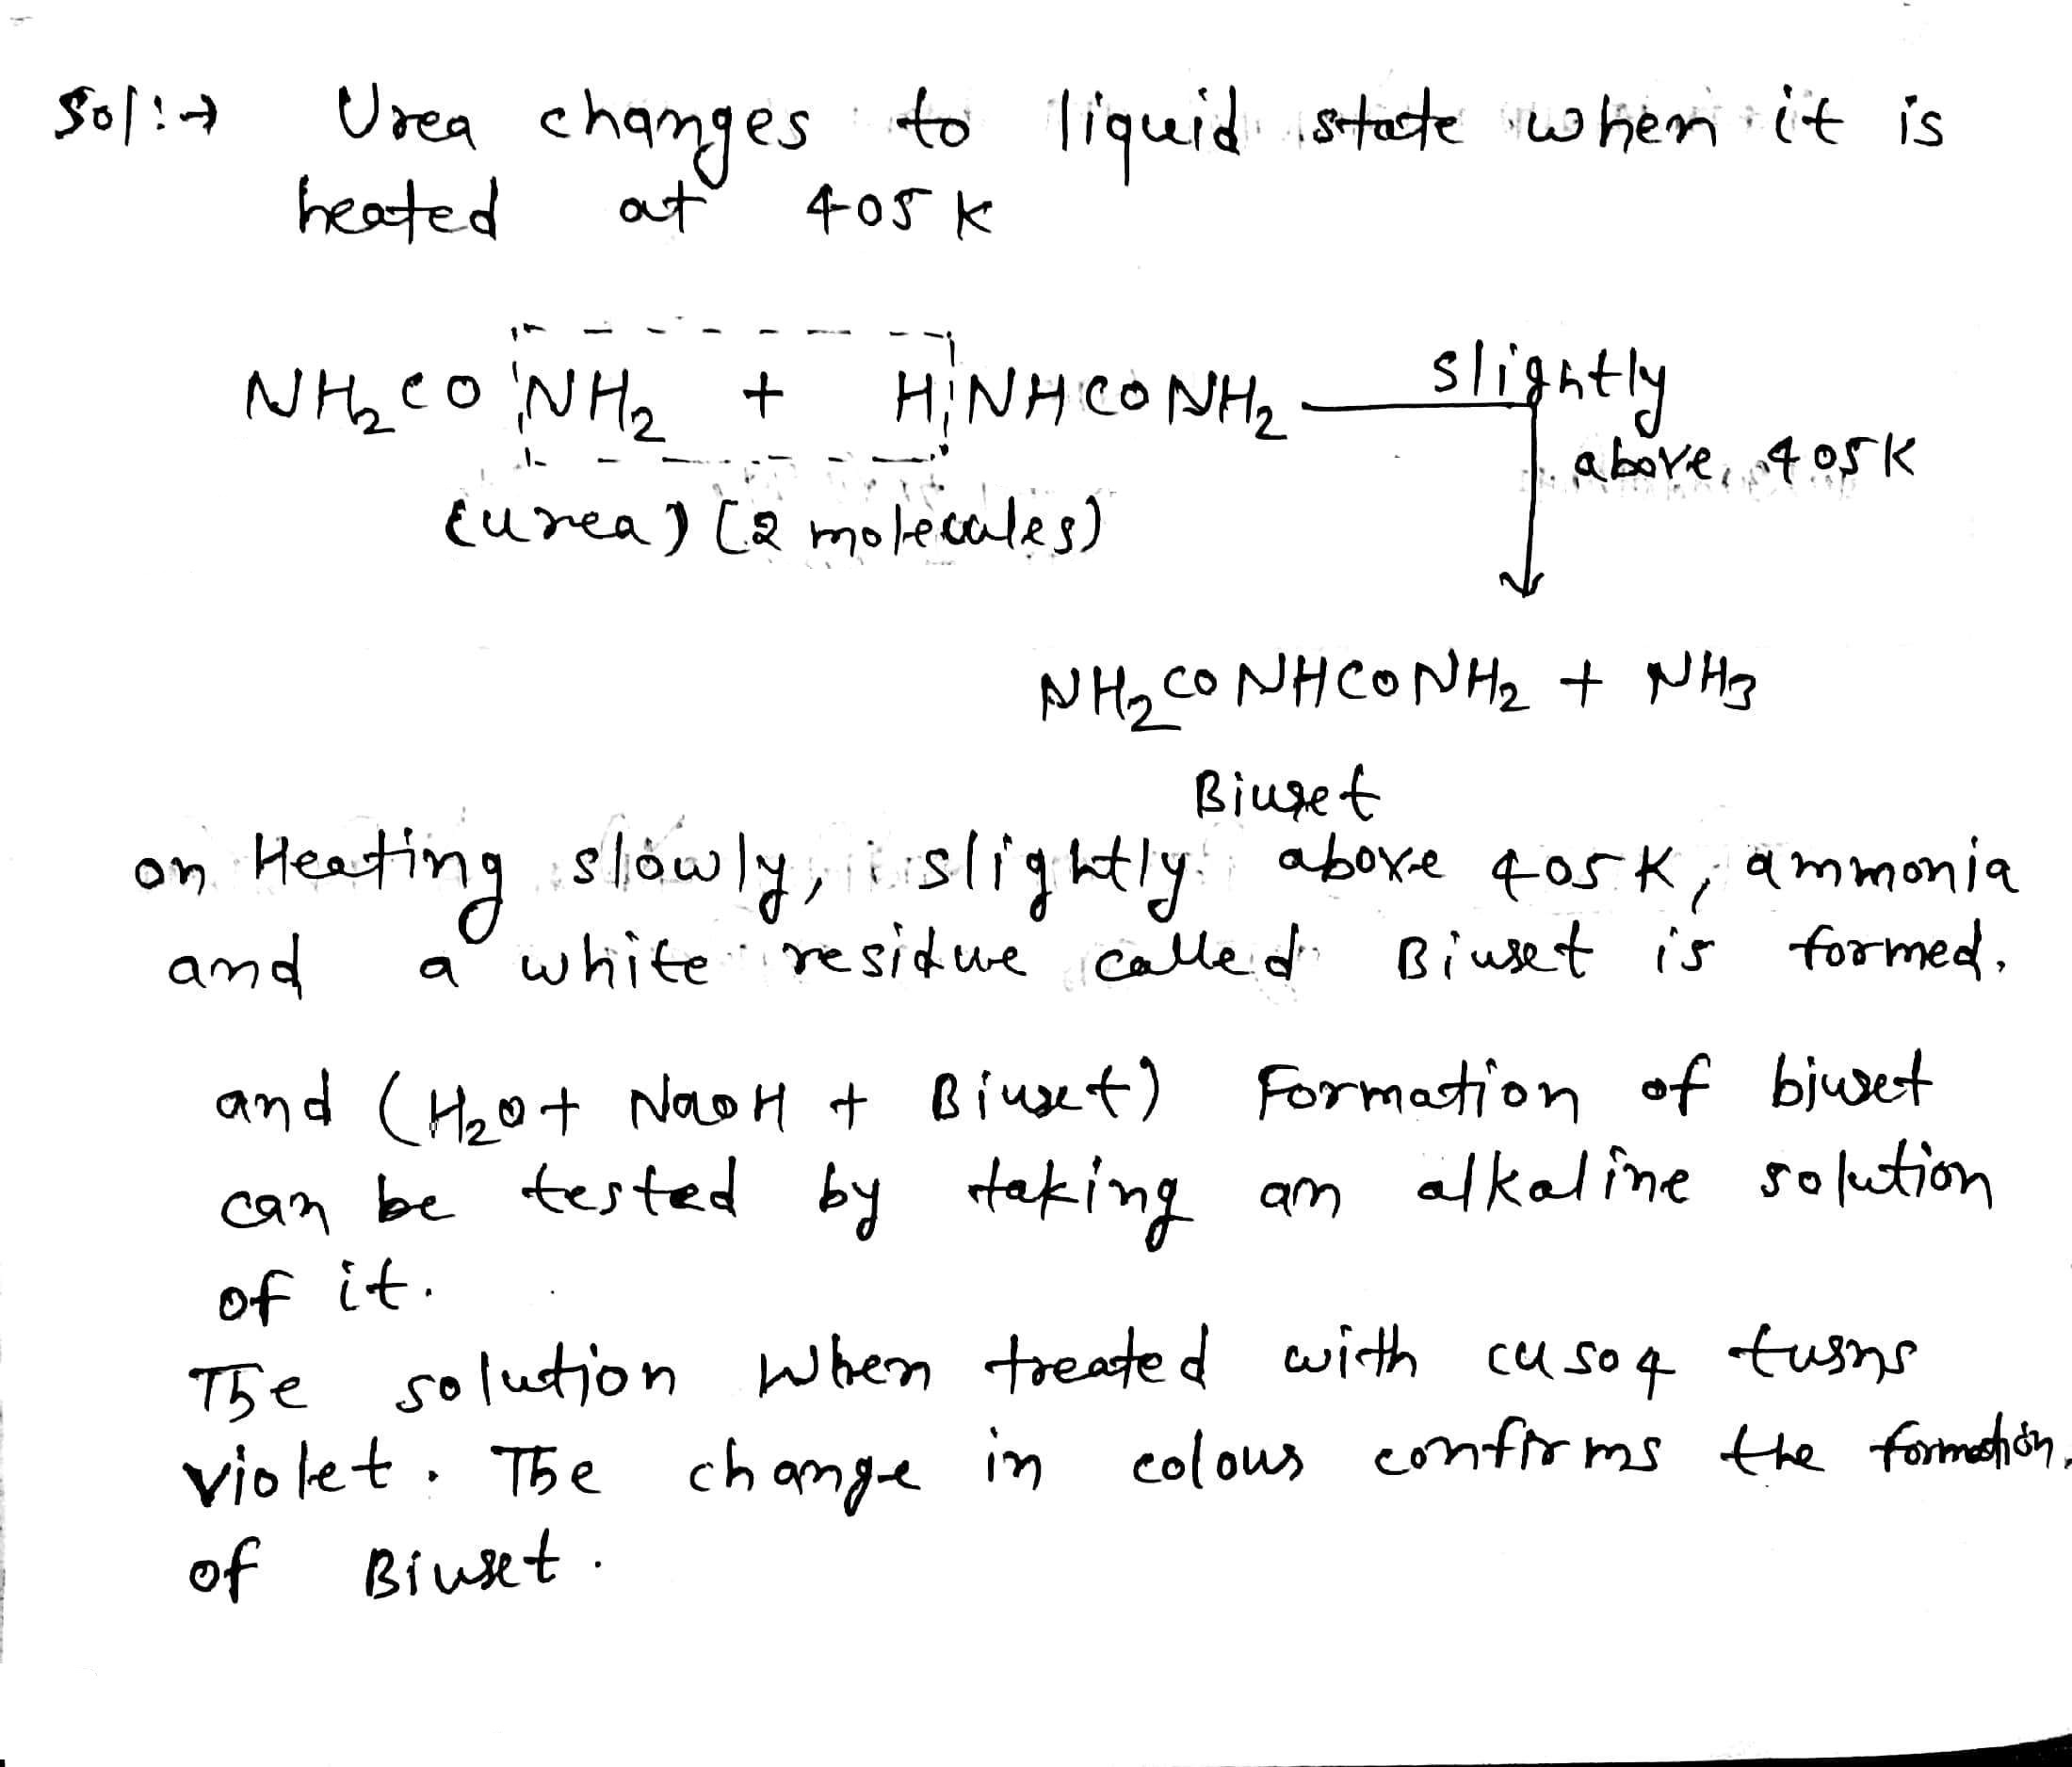 Sol:→ Urea changes to liquid state when it is
heated at 405 K
NH₂CO NH₂ + H NHCONH₂ slightly
above 405K
(urea) (2 molecules)
NH₂CONHCONH₂ + NH₃
Biuret
on Heating slowly, slightly above 405 K, ammonia
and a white residue called Biuret is formed.
and (H₂O + NaOH + Biuret) Formation of biuret
can be tested by taking an alkaline solution
of it.
The solution when treated with cuso4 turns
violet. The change in colour confirms the formation
of Biuret.